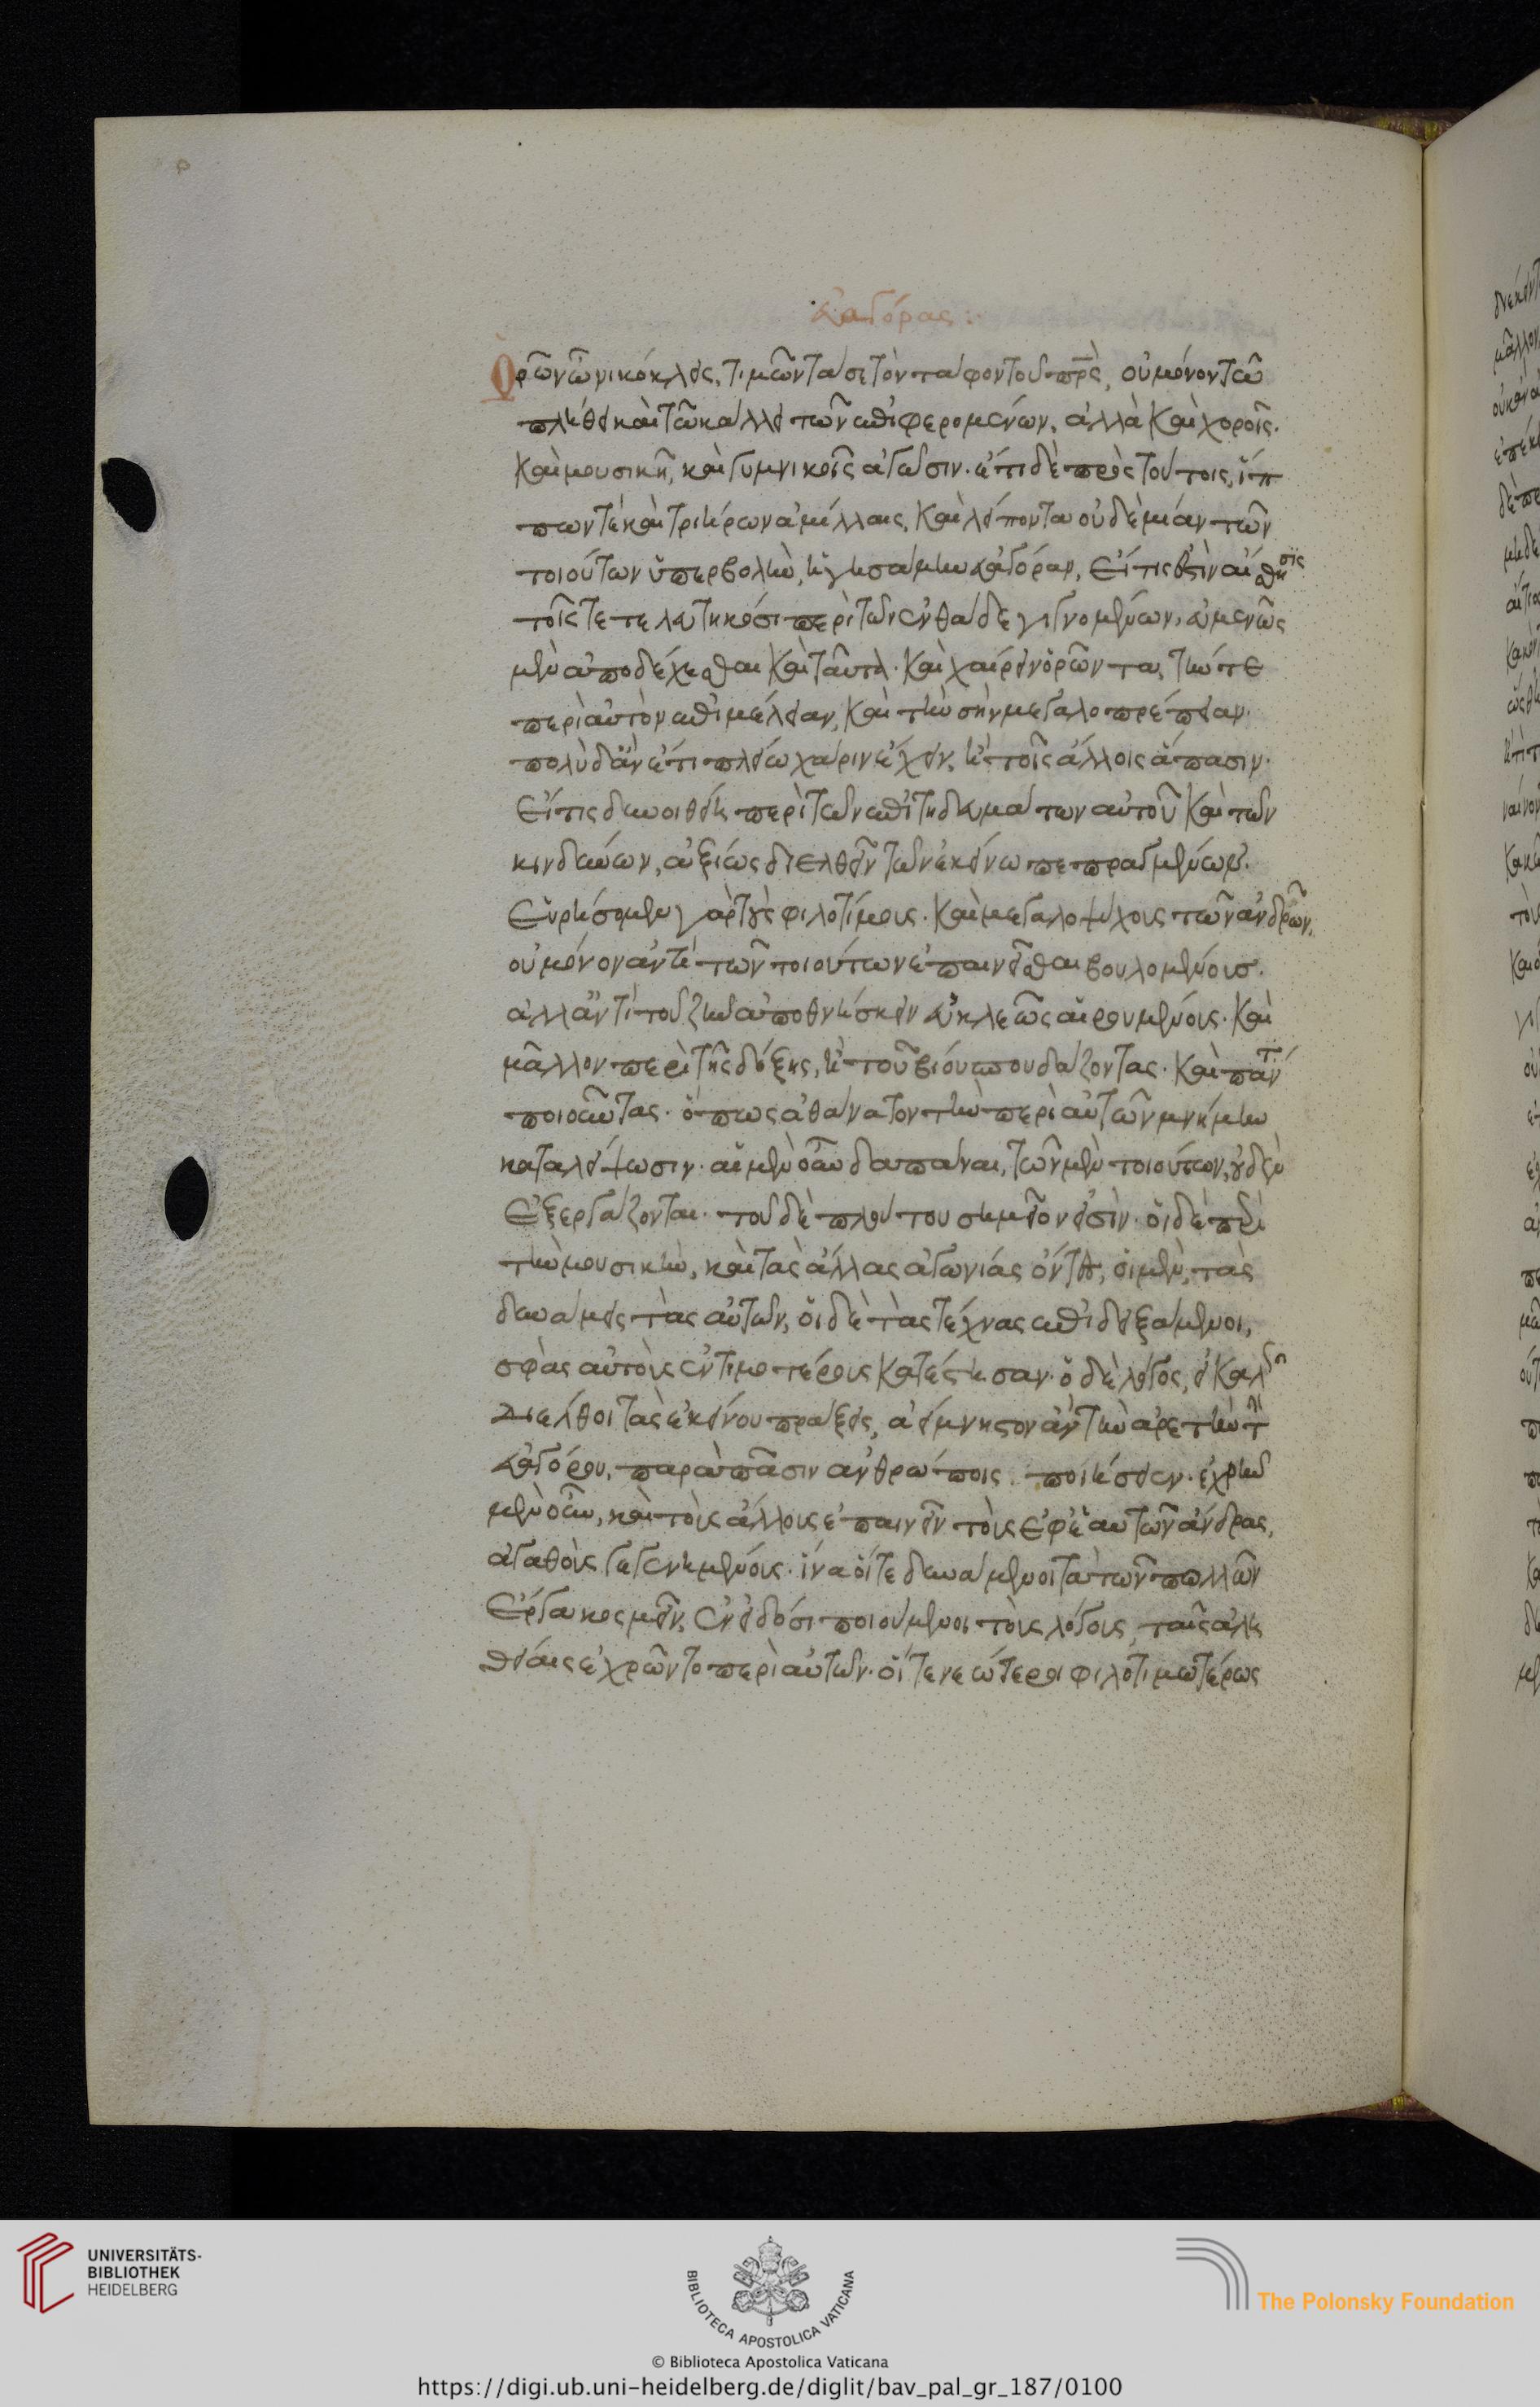 Εὐαγόρας:
Ὁρῶν ὦ νικόκλεις, τιμῶντά σε τὸν τάφον τοῦ π̅ρ̅ς̀, οὐ μόνον τῶ
πλήθει καὶ τῶ κάλλει τῶν ἐπιφερομένων, ἀλλὰ καὶ χοροῖς.
καὶ μουσικῆ, καὶ γυμνικοῖς ἀγῶσιν. ἔτι δὲ πρὸς τούτοις, ἵπ
πων τέ καὶ τριήρων ἁμίλλαις, καὶ λείποντα οὐδὲ μίαν τῶν
τοιούτων ὑπερβολὴν, ἡγησάμην εὐαγόραν, εἴ τις ἐστὶν αἴσθησις
τοῖς τετελευτηκόσι περὶ τῶν ἐνθάδε γιγνομένων, εὐμενῶς
μὲν ἀποδέχεσθαι καὶ ταῦτα. καὶ χαίρειν ὁρῶντα, τήν τε
περὶ αὐτὸν ἐπιμέλειαν, καὶ τὴν σὴν μεγαλοπρέπειαν.
πολὺ δ᾽ ἂν ἔτι πλείω χάριν ἔχειν, ἢ τοῖς ἄλλοις ἅπασιν.
Εἴ τις δυνηθείη περὶ τῶν ἐπιτηδευμάτων αὐτοῦ καὶ τῶν
κινδύνων, ἀξίως διελθεῖν τῶν ἐκείνω πεπραγμένων.
Εὑρήσομεν γὰρ τοὺς φιλοτίμους. καὶ μεγαλοψύχους τῶν ἀνδρῶν,
οὐ μόνον ἀντὶ τῶν τοιούτων ἐπαινεῖσθαι βουλομένους.
ἀλλ᾽ ἀντὶ τοῦ ζῆν ἀποθνήσκειν εὐκλεῶς αἱρουμένους. καὶ
μᾶλλον περὶ τῆς δόξης, ἢ τοῦ βίου σπουδάζοντας. καὶ πάντ
ποιοῦντας. ὅπως ἀθάνατον τὴν περὶ αὐτῶν μνήμην
καταλείψωσιν. αἱ μὲν οὖν δαπάναι, τῶν μὲν τοιούτων, οὐδὲν
ἐξεργάζονται. τοῦ δὲ πλούτου σημεῖον εἰσὶν. οἱ δὲ περὶ
τὴν μουσικὴν, καὶ τὰς ἄλλας ἀγωνίας ὄντες, οἱ μὲν, τὰς
δυνάμεις τὰς αὐτῶν, οἱ δὲ τὰς τέχνας ἐπιδειξάμενοι,
σφᾶς αὐτοὺς ἐντιμοτέρους κατέστησαν. ὁ δὲ λόγος, εἰ καλῶς
διέλθοι τὰς ἐκείνου πράξεις, ἀείμνηστον ἂν τὴν ἀρετὴν τὴν
εὐαγόρου, παρὰ πᾶσιν ἀνθρώποις ποιήσειεν. ἐχρῆν
μὲν οὖν, καὶ τοὺς ἄλλους ἐπαινεῖν τοὺς ἐφ᾽ ἑαυτῶν ἄνδρας,
ἀγαθοὺς γεγενημένους. ἵνα οἵ τε δυνάμενοι τὰ τῶν πολλῶν
ἔργα κοσμεῖν, ἐν εἰδόσι ποιούμενοι τοὺς λόγους, ταῖς ἀλη
θείαις ἐχρῶντο περὶ αὐτῶν. οἵ τε νεώτεροι φιλοτιμωτέρως
UNIVERSITÄTS-
BIBLIOTHEK
HEIDELBERG
BIBLIOTECA APOSTOLICA VATICANA
The Polonsky Foundation
© Biblioteca Apostolica Vaticana
https://digi.ub.uni-heidelberg.de/diglit/bav_pal_gr_187/0100